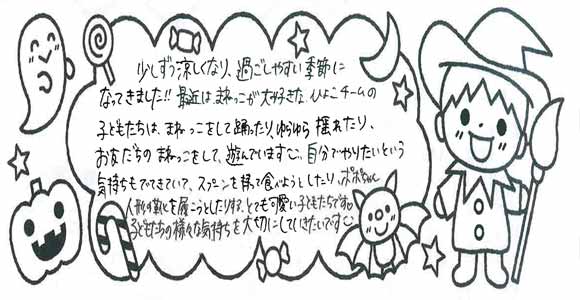 少しずつ涼しくなり、過ごしやすい季節に
なってきました!! 最近は、まねっこが大好きな、ひよこチームの
子どもたちは、まねっこをして踊ったり、ゆらゆら揺れたり、
お友だちのまねっこをして、遊んでいます。自分でやりたいという
気持ちもでてきていて、スプーンを持って食べようとしたり、ポポちゃん
人形の靴を履こうとしたりする、とても可愛い子どもたちです
子どもたちの様々な気持ちを大切にしていきたいです